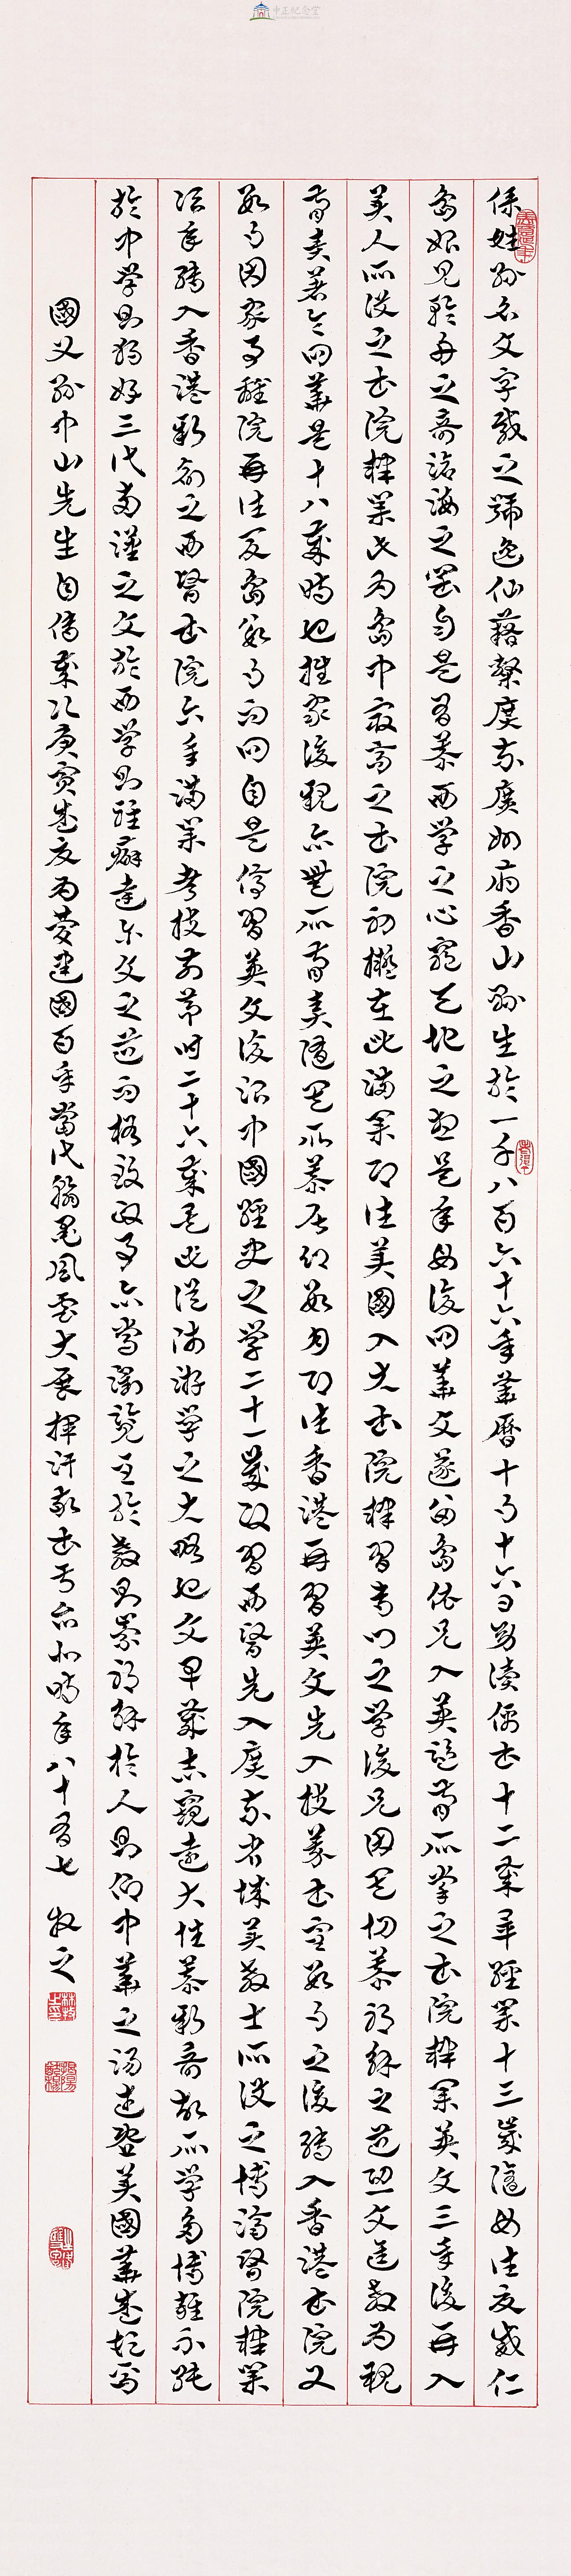 中正紀念堂
僕姓孫名文字載之號逸仙藉隸廣東廣州府香山縣生於一千八百六十六年華曆十月十六日幼讀儒書十二歲畢經業十三歲隨母往夏威仁
島始見輪舟之奇滄海之闊自是有慕西學之心窮天地之想是年母復回華文遂留島依兄入英監督所掌之書院肄業英文三年後再入
美人所設之書院肄業此為島中最高之書院初擬在此滿業即往美國入大書院肄習專門之學後兄因其切慕耶穌之道恐文進教為親
督責著令回華是十八歲時也抵家後親亦無所督責隨其所慕居鄉數月即往香港再習英文先入拔萃書室數月之後轉入香港書院又
數月因家事離院再往夏島數月而回自是停習英文復治中國經史之学二十一歲改習西醫先入廣東省城美教士所設之博濟醫院肄業
次年轉入香港新創之西醫書院六年滿業考拔前第時二十六歲矣此從師游学之大略也文早歲志窺遠大性慕新奇故所学多博雜不純
於中学則獨好三代兩漢之文於西学則雅癖達尔文之道而格致政事亦常瀏覽至於教則崇耶穌於人則仰中華之湯武暨美國華盛頓焉
國父孫中山先生自傳歲次庚寅盛夏為慶建國百年當代翰墨風雲大展揮汗敬書于台北時年八十有七 牧之
林牧之印